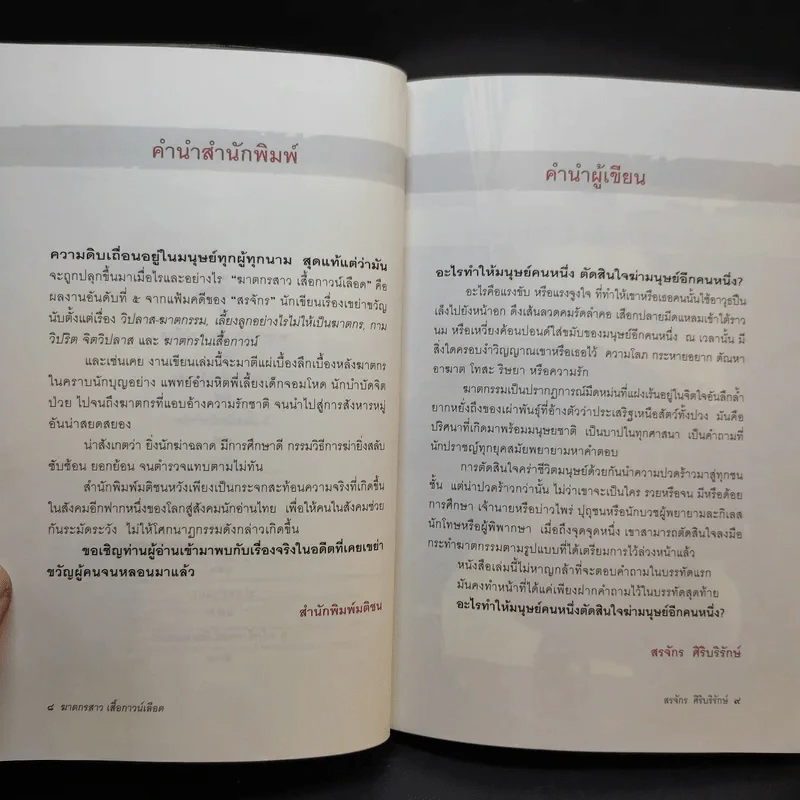 คำนำสำนักพิมพ์
ความดิบเถื่อนอยู่ในมนุษย์ทุกผู้ทุกนาม สุดแท้แต่ว่ามัน
จะถูกปลุกขึ้นมาเมื่อไรและอย่างไร "ฆาตกรสาว เสื้อกาวน์เลือด" คือ
ผลงานอันดับที่ ๕ จากแฟ้มคดีของ "สรจักร" นักเขียนเรื่องเขย่าขวัญ
นับตั้งแต่เรื่อง วิปลาส-ฆาตกรรม, เลี้ยงลูกอย่างไรไม่ให้เป็นฆาตกร, กาม
วิปริต จิตวิปลาส และ ฆาตกรในเสื้อกาวน์
และเช่นเคย งานเขียนเล่มนี้จะมาตีแผ่เบื้องลึกเบื้องหลังฆาตกร
ในคราบนักบุญอย่าง แพทย์อำมหิตพี่เลี้ยงเด็กจอมโหด นักบำบัดจิต
ป่วย ไปจนถึงฆาตกรที่แอบอ้างความรักชาติ จนนำไปสู่การสังหารหมู่
อันน่าสยดสยอง
น่าสังเกตว่า ยิ่งนักฆ่าฉลาด มีการศึกษาดี กรรมวิธีการฆ่ายิ่งสลับ
ซับซ้อน ยอกย้อน จนตำรวจแทบตามไม่ทัน
สำนักพิมพ์มติชนหวังเพียงเป็นกระจกสะท้อนความจริงที่เกิดขึ้น
ในสังคมอีกฟากหนึ่งของโลกสู่สังคมนักอ่านไทย เพื่อให้คนในสังคมช่วย
กันระมัดระวัง ไม่ให้โศกนาฏกรรมดังกล่าวเกิดขึ้น
ขอเชิญท่านผู้อ่านเข้ามาพบกับเรื่องจริงในอดีตที่เคยเขย่า
ขวัญผู้คนจนหลอนมาแล้ว
สำนักพิมพ์มติชน
๘ ฆาตกรสาว เสื้อกาวน์เลือด
คำนำผู้เขียน
อะไรทำให้มนุษย์คนหนึ่ง ตัดสินใจฆ่ามนุษย์อีกคนหนึ่ง?
อะไรคือแรงขับ หรือแรงจูงใจ ที่ทำให้เขาหรือเธอคนนั้นใช้อาวุธปืน
เล็งไปยังหน้าอก ดึงเส้นลวดคมรัดลำคอ เสือกปลายมีดแหลมเข้าใต้ราว
นม หรือเหวี่ยงค้อนปอนด์ใส่ขมับของมนุษย์อีกคนหนึ่ง ณ เวลานั้น มี
สิ่งใดครอบงำวิญญาณเขาหรือเธอไว้ ความโลภ กระหายอยาก ตัณหา
อาฆาต โทสะ ริษยา หรือความรัก
ฆาตกรรมเป็นปรากฏการณ์มืดหม่นที่แฝงเร้นอยู่ในจิตใจอันลึกล้ำ
ยากหยั่งถึงของเผ่าพันธุ์ที่อ้างตัวว่าประเสริฐเหนือสัตว์ทั้งปวง มันคือ
ปริศนาที่เกิดมาพร้อมมนุษยชาติ เป็นบาปในทุกศาสนา เป็นคำถามที่
นักปราชญ์ทุกยุคสมัยพยายามหาคำตอบ
การตัดสินใจคร่าชีวิตมนุษย์ด้วยกันนำความปวดร้าวมาสู่ทุกชน
ชั้น แต่น่าปวดร้าวกว่านั้น ไม่ว่าเขาจะเป็นใคร รวยหรือจน มีหรือด้อย
การศึกษา เจ้านายหรือบ่าวไพร่ ปุถุชนหรือนักบวชผู้พยายามละกิเลส
นักโทษหรือผู้พิพากษา เมื่อถึงจุดจุดหนึ่ง เขาสามารถตัดสินใจลงมือ
กระทำฆาตกรรมตามรูปแบบที่ได้เตรียมการไว้ล่วงหน้าแล้ว
หนังสือเล่มนี้ไม่หาญกล้าที่จะตอบคำถามในบรรทัดแรก
มันคงทำหน้าที่ได้แค่เพียงฝากคำถามไว้ในบรรทัดสุดท้าย
อะไรทำให้มนุษย์คนหนึ่งตัดสินใจฆ่ามนุษย์อีกคนหนึ่ง?
สรจักร ศิริบริรักษ์
สรจักร ศิริบริรักษ์ ๙